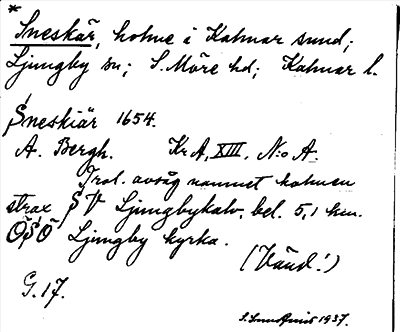 *
Sneskär, holme i Kalmar sund;
Ljungby sn; S. Möre hd; Kalmar l.
Sneskiär 1654.
A. Bergh. KrA, XIII, N:o A.
Trol. avsåg namnet holmen
strax SV Ljungbykalv, bel. 5,1 km.
OSO Ljungby kyrka.
(Vänd!)
G. 17.
1937.